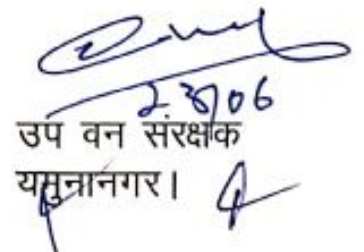 23/06
उप वन संरक्षक
यमुनानगर।